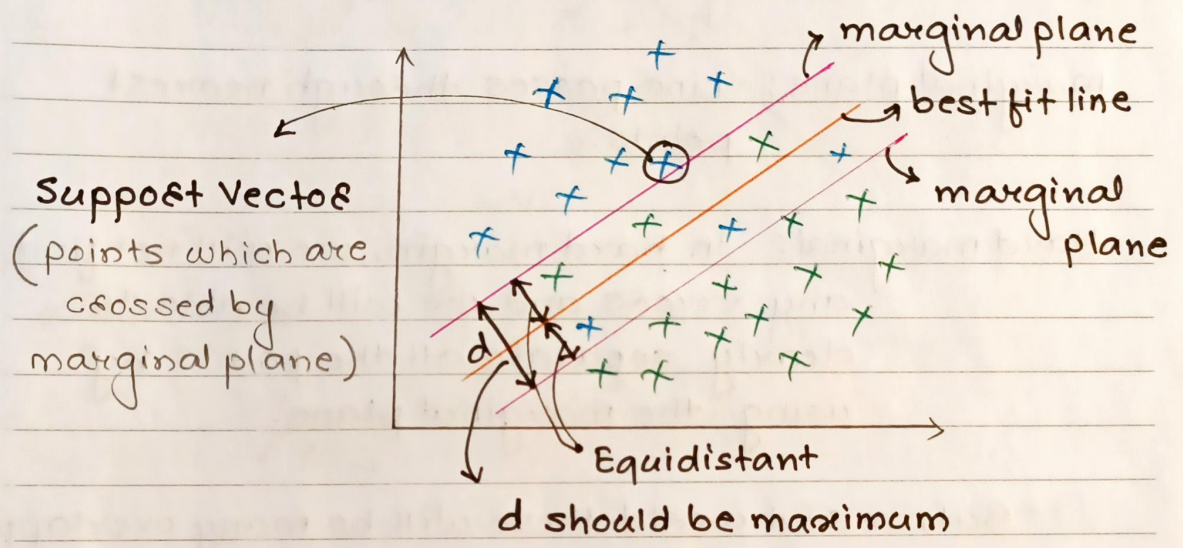 marginal plane
best fit line
marginal
plane
Support Vector
(points which are
crossed by
marginal plane)
d
Equidistant
d should be maximum